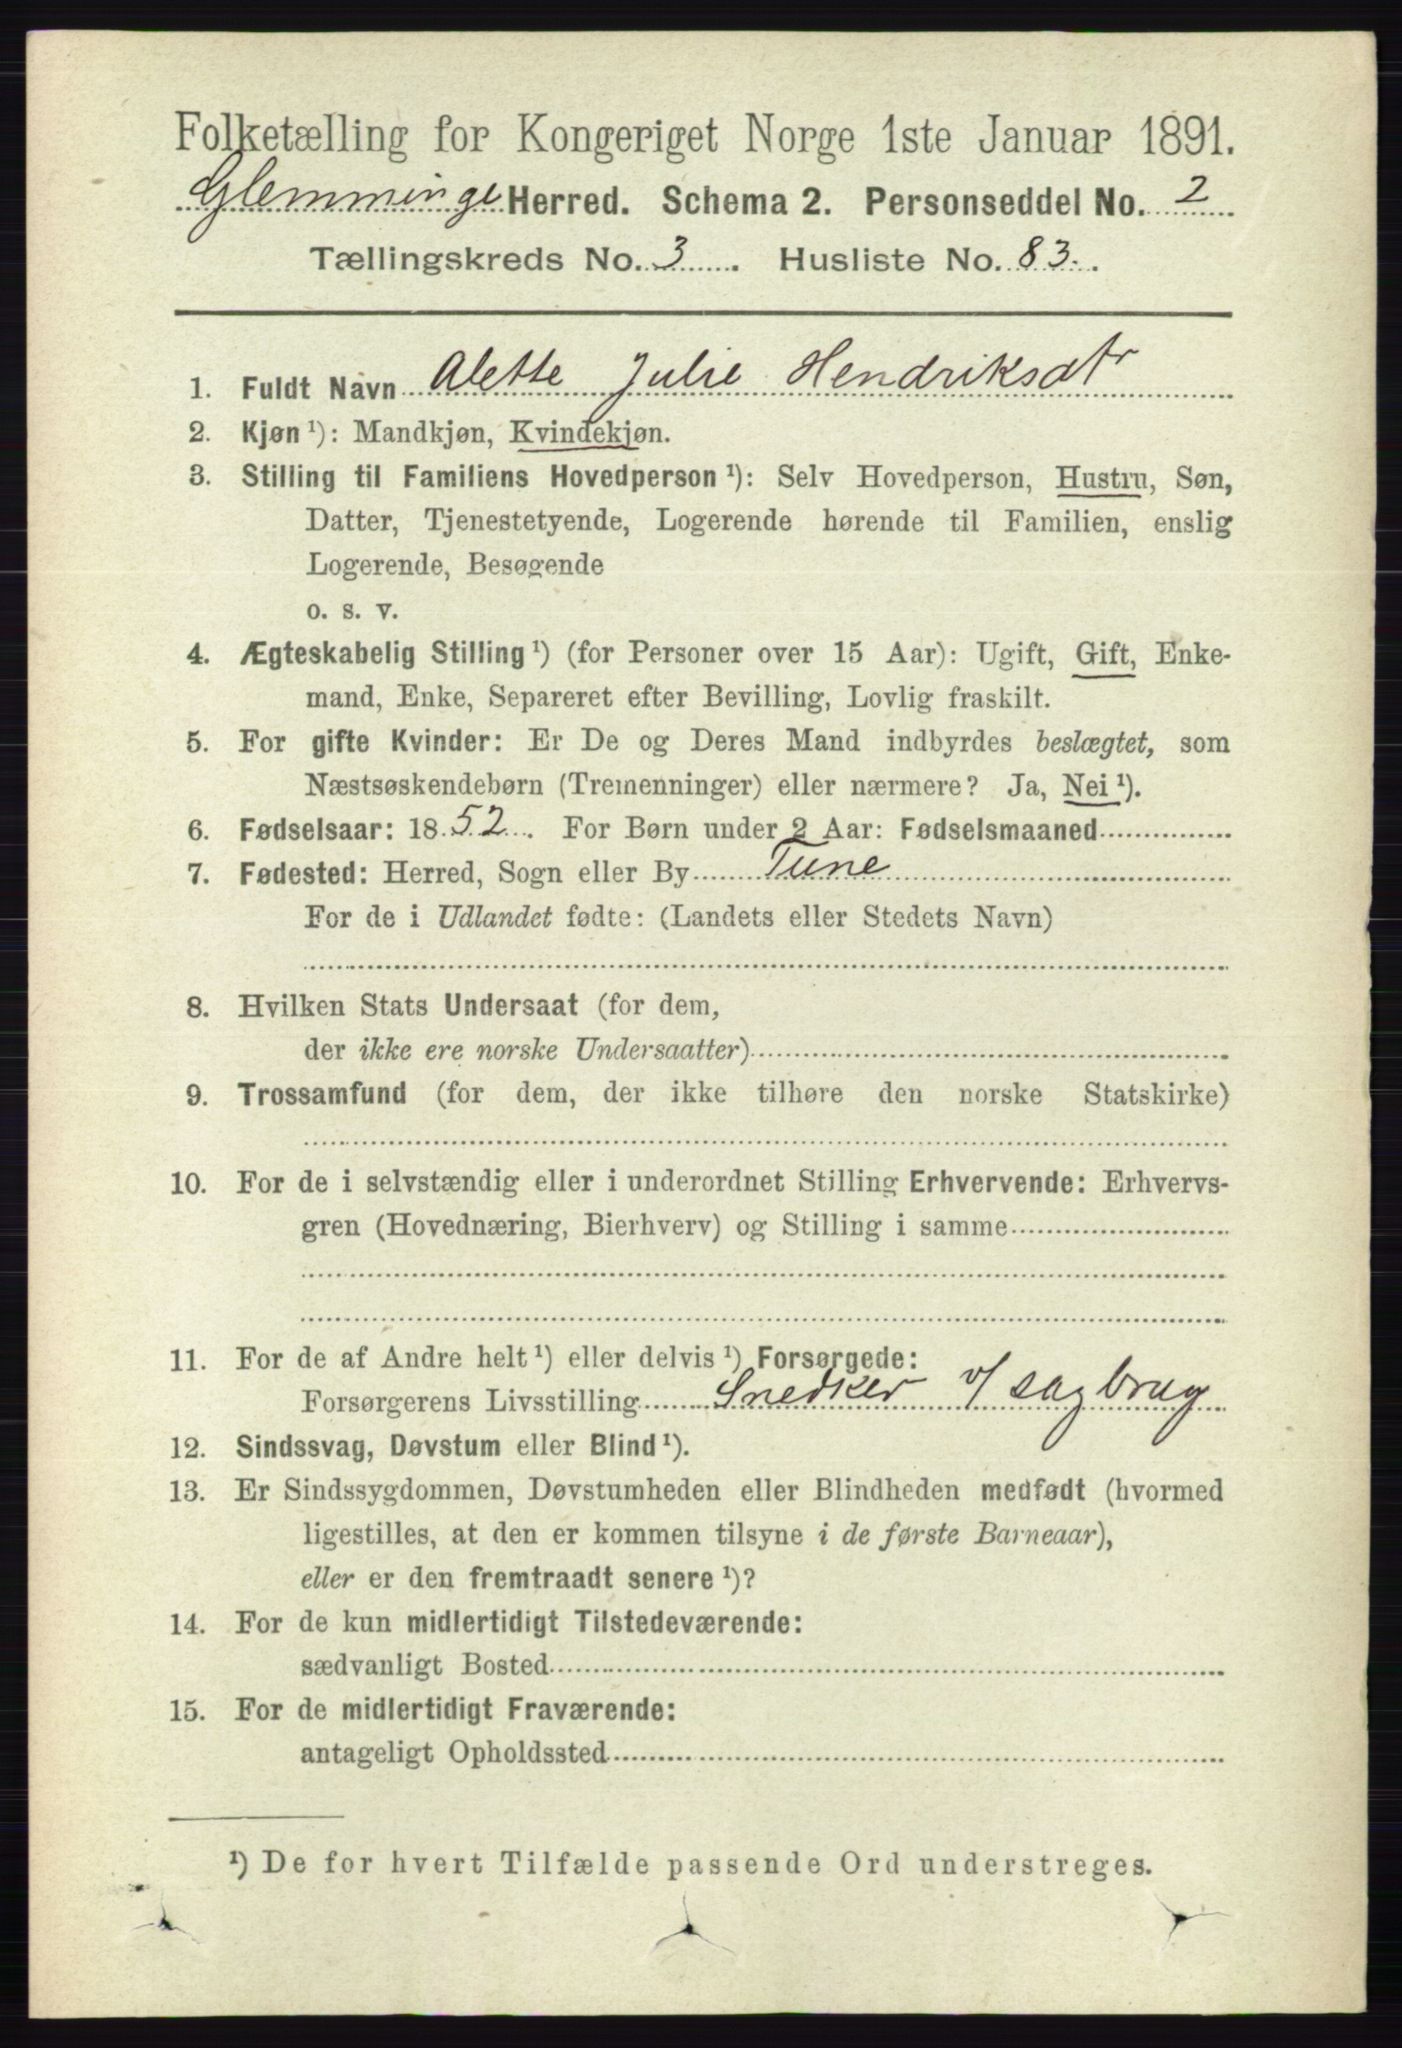 Folketælling for Kongeriget Norge 1ste Januar 1891.
Glemminge Herred. Schema 2. Personseddel No. 2
Tællingskreds No. 3. Husliste No. 83.
1. Fuldt Navn Alette Julie Hendriksdtr
2. Kjøn ¹): Mandkjøn, Kvindekjøn.
3. Stilling til Familiens Hovedperson ¹): Selv Hovedperson, Hustru, Søn,
Datter, Tjenestetyende, Logerende hørende til Familien, enslig
Logerende, Besøgende
o. s. v.
4. Ægteskabelig Stilling ¹) (for Personer over 15 Aar): Ugift, Gift, Enke-
mand, Enke, Separeret efter Bevilling, Lovlig fraskilt.
5. For gifte Kvinder: Er De og Deres Mand indbyrdes beslægtet, som
Næstsøskendebørn (Tremenninger) eller nærmere? Ja, Nei ¹).
6. Fødselsaar: 1852. For Børn under 2 Aar: Fødselsmaaned
7. Fødested: Herred, Sogn eller By Tune
For de i Udlandet fødte: (Landets eller Stedets Navn)
8. Hvilken Stats Undersaat (for dem,
der ikke ere norske Undersaatter)
9. Trossamfund (for dem, der ikke tilhøre den norske Statskirke)
10. For de i selvstændig eller i underordnet Stilling Erhvervende: Erhvervs-
gren (Hovednæring, Bierhverv) og Stilling i samme
11. For de af Andre helt ¹) eller delvis ¹) Forsørgede:
Forsørgerens Livsstilling Snedker v/ sagbrug
12. Sindssvag, Døvstum eller Blind ¹).
13. Er Sindssygdommen, Døvstumheden eller Blindheden medfødt (hvormed
ligestilles, at den er kommen tilsyne i de første Barneaar),
eller er den fremtraadt senere ¹)?
14. For de kun midlertidigt Tilstedeværende:
sædvanligt Bosted
15. For de midlertidigt Fraværende:
antageligt Opholdssted
¹) De for hvert Tilfælde passende Ord understreges.